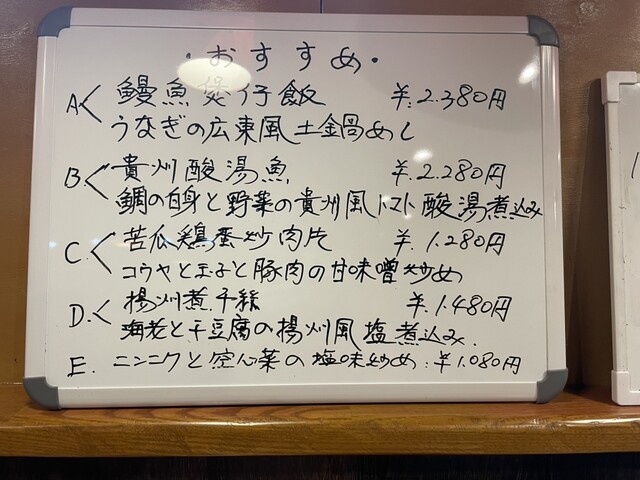 ・おすすめ・
A< 鰻魚煲仔飯 ¥.2.380円
うなぎの広東風土鍋めし
B< 貴州酸湯魚 ¥.2.280円
鯛の白身と野菜の貴州風トマト酸湯煮込み
C< 苦瓜鶏蛋炒肉片 ¥.1.280円
コウヤと玉子と豚肉の甘味噌炒め
D.< 揚州煮干絲 ¥.1.480円
海老と干豆腐の揚州風塩煮込み.
E. ニンニクと空心菜の塩味炒め:¥1.080円